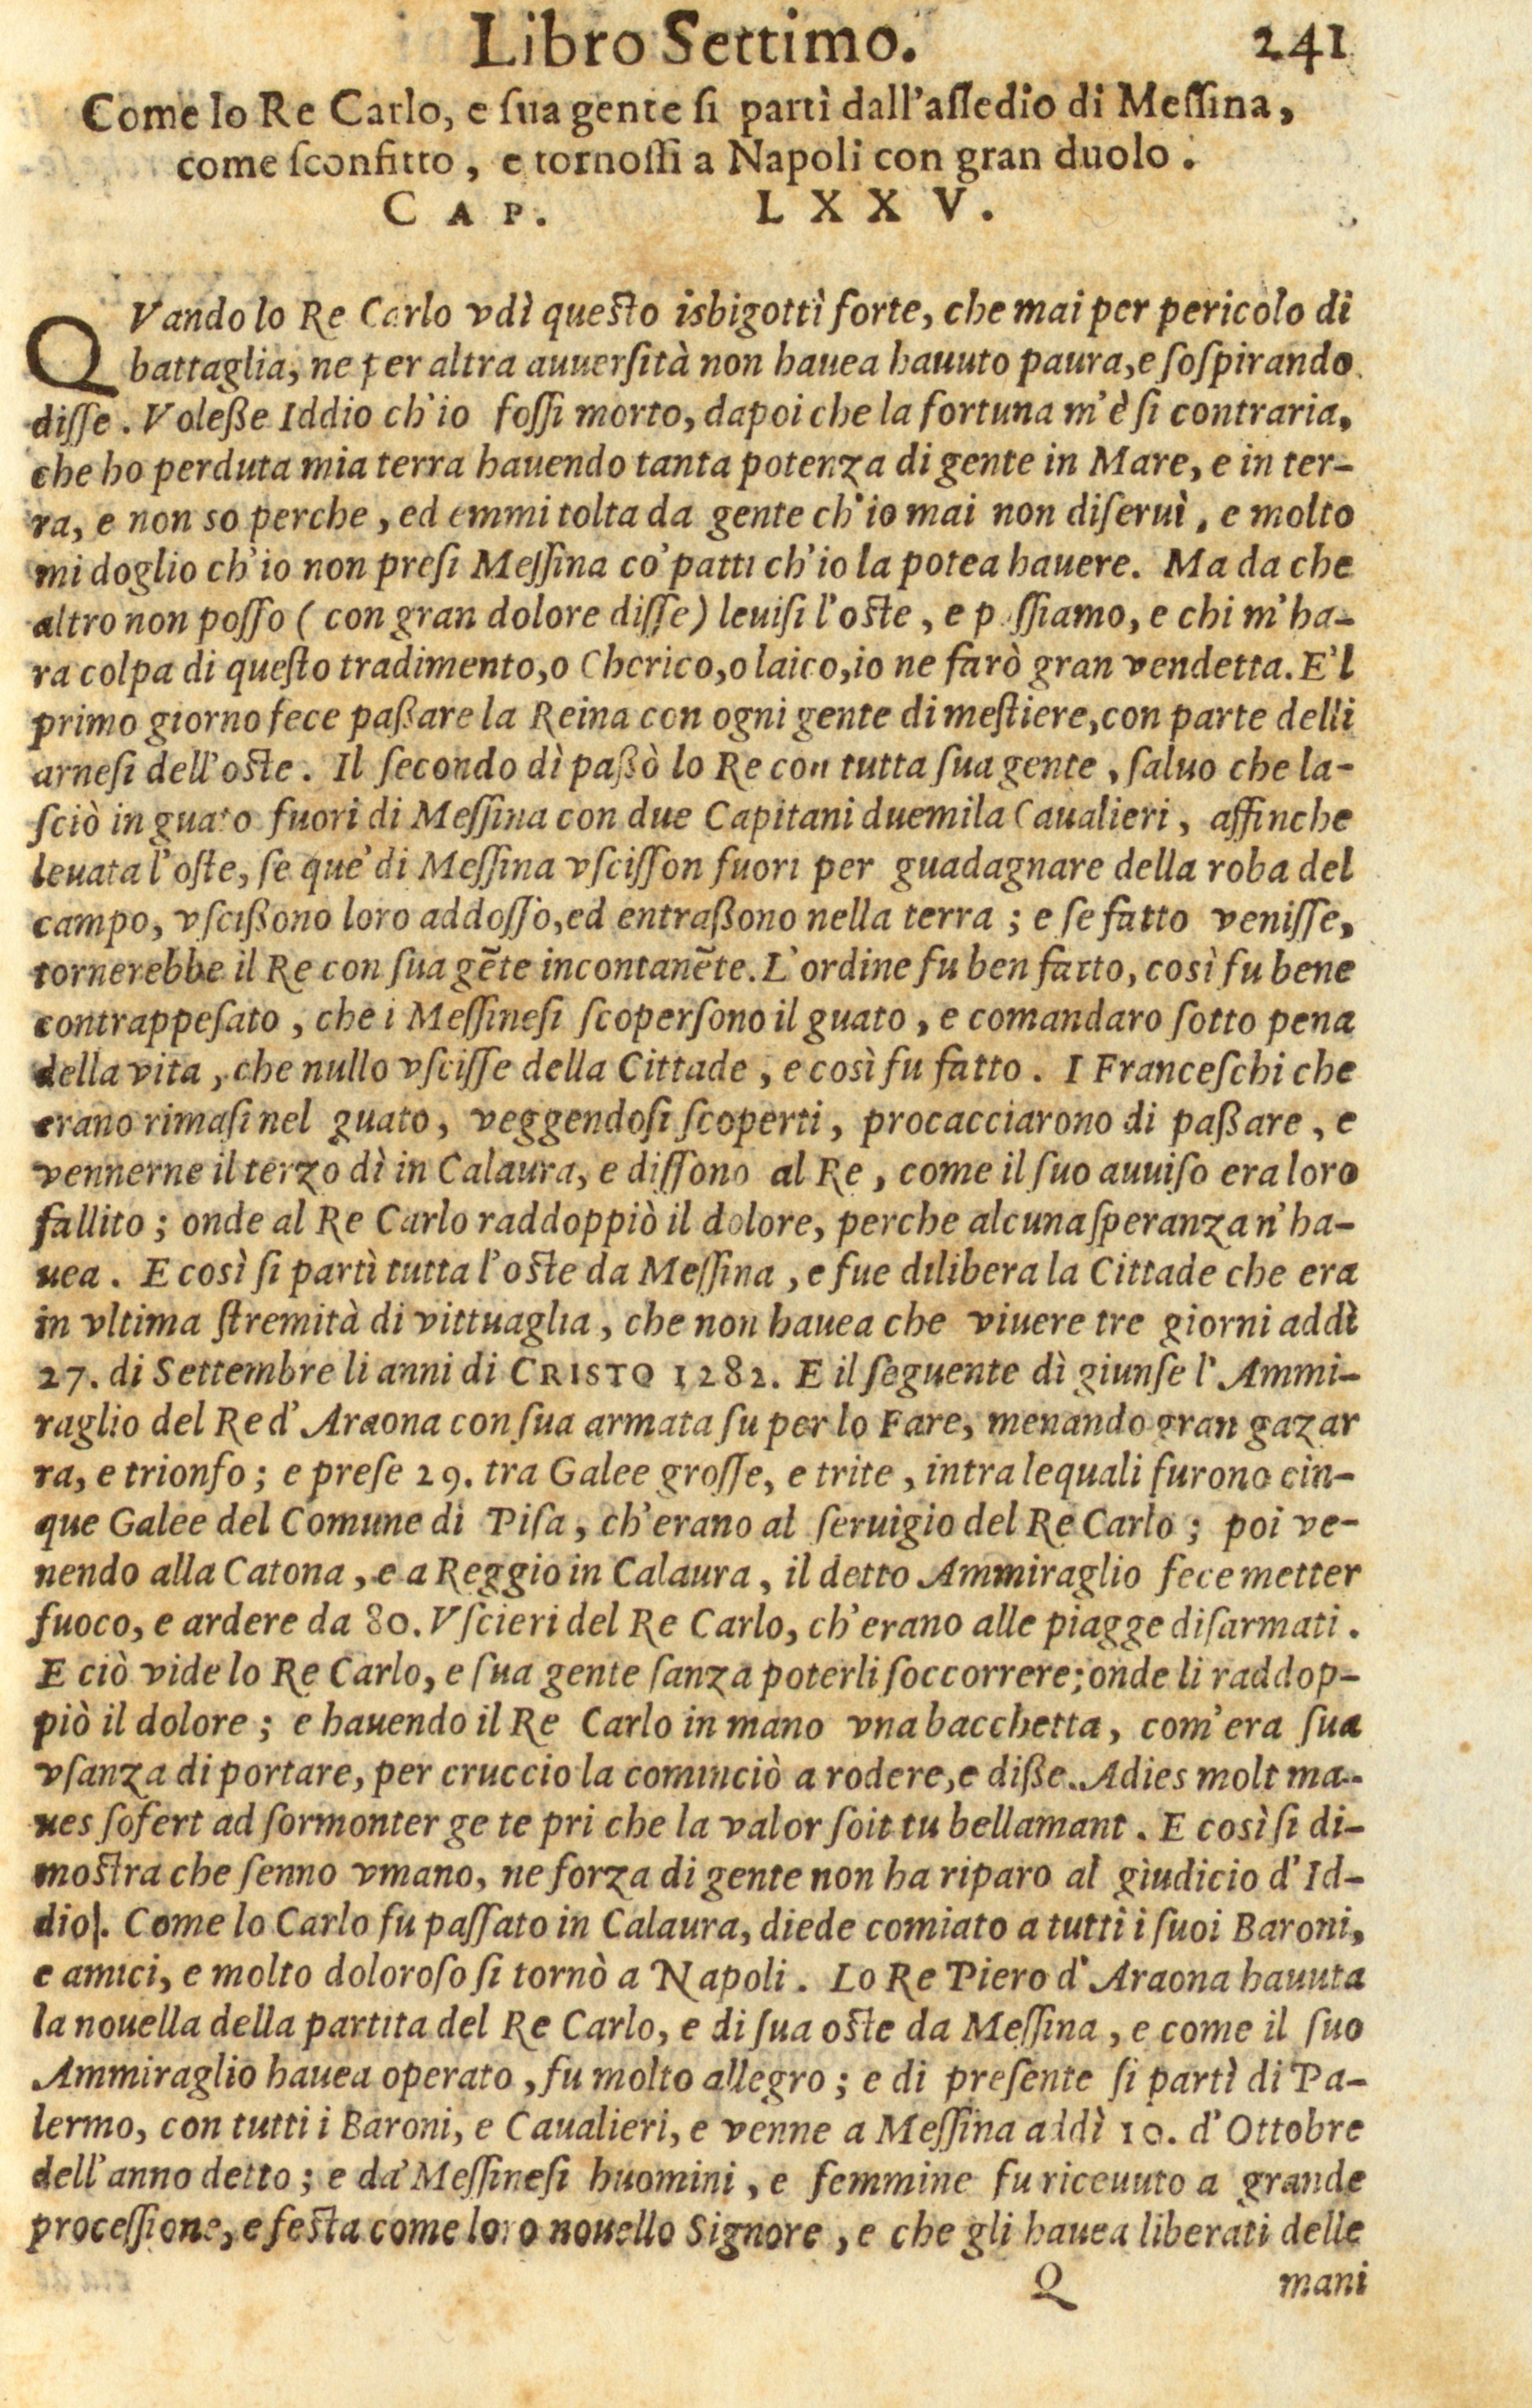 Libro Settimo. 241
Come lo Re Carlo, e ſua gente ſi partì dall'aſſedio di Meſſina,
come ſconfitto, e tornoſſi a Napoli con gran duolo.
CAP. LXXV.
QVando lo Re Carlo vdì queſto isbigottì forte, che mai per pericolo di
battaglia, ne per altra auuerſità non hauea hauuto paura, e ſoſpirando
diſſe. Voleße Iddio ch'io foſſi morto, dapoi che la fortuna m'è ſi contraria,
che ho perduta mia terra hauendo tanta potenza di gente in Mare, e in ter-
ra, e non so perche, ed emmi tolta da gente ch'io mai non diſeruì, e molto
mi doglio ch'io non preſi Meſſina co' patti ch'io la potea hauere. Ma da che
altro non poſſo (con gran dolore diſſe) leuiſi l'oſte, e p ſſiamo, e chi m'ha-
ra colpa di queſto tradimento, o Cherico, o laico, io ne farò gran vendetta. E'l
primo giorno fece paßare la Reina con ogni gente di meſtiere, con parte delli
arneſi dell'oſte. Il ſecondo dì paßò lo Re con tutta ſua gente, ſaluo che la-
ſciò in guato fuori di Meſſina con due Capitani duemila Caualieri, affinche
leuata l'oſte, ſe que' di Meſſina vſciſſon fuori per guadagnare della roba del
campo, vſcißono loro addoſſo, ed entraßono nella terra; e ſe fatto veniſſe,
tornerebbe il Re con ſua gẽte incontanẽte. L'ordine fu ben fatto, così fu bene
contrappeſato, che i Meſſineſi ſcoperſono il guato, e comandaro ſotto pena
della vita, che nullo vſciſſe della Cittade, e così fu fatto. I Franceſchi che
erano rimaſi nel guato, veggendoſi ſcoperti, procacciarono di paßare, e
vennerne il terzo dì in Calaura, e diſſono al Re, come il ſuo auuiſo era loro
fallito; onde al Re Carlo raddoppiò il dolore, perche alcuna ſperanza n'ha-
uea. E così ſi partì tutta l'oſte da Meſſina, e fue dilibera la Cittade che era
in vltima ſtremità di vittuaglia, che non hauea che viuere tre giorni addì
27. di Settembre li anni di CRISTO 1282. E il ſeguente dì giunſe l'Ammi-
raglio del Re d'Araona con ſua armata ſu per lo Fare, menando gran gazar
ra, e trionfo; e preſe 29. tra Galee groſſe, e trite, intra lequali furono cin-
que Galee del Comune di Piſa, ch'erano al ſeruigio del Re Carlo; poi ve-
nendo alla Catona, e a Reggio in Calaura, il detto Ammiraglio fece metter
fuoco, e ardere da 80. Vſcieri del Re Carlo, ch'erano alle piagge diſarmati.
E ciò vide lo Re Carlo, e ſua gente ſanza poterli ſoccorrere; onde li raddop-
piò il dolore; e hauendo il Re Carlo in mano vna bacchetta, com'era ſua
vſanza di portare, per cruccio la cominciò a rodere, e diße.. Adies molt ma-
ues ſofert ad ſormonter ge te pri che la valor ſoit tu bellamant. E così ſi di-
moſtra che ſenno vmano, ne forza di gente non ha riparo al giudicio d'Id-
dio|. Come lo Carlo fu paſſato in Calaura, diede comiato a tutti i ſuoi Baroni,
e amici, e molto doloroſo ſi tornò a Napoli. Lo Re Piero d'Araona hauuta
la nouella della partita del Re Carlo, e di ſua oſte da Meſſina, e come il ſuo
Ammiraglio hauea operato, fu molto allegro; e di preſente ſi partì di Pa-
lermo, con tutti i Baroni, e Caualieri, e venne a Meſſina addì 10. d'Ottobre
dell'anno detto; e da' Meſſineſi huomini, e femmine fu riceuuto a grande
proceſſione, e feſta come loro nouello Signore, e che gli hauea liberati delle
Q mani